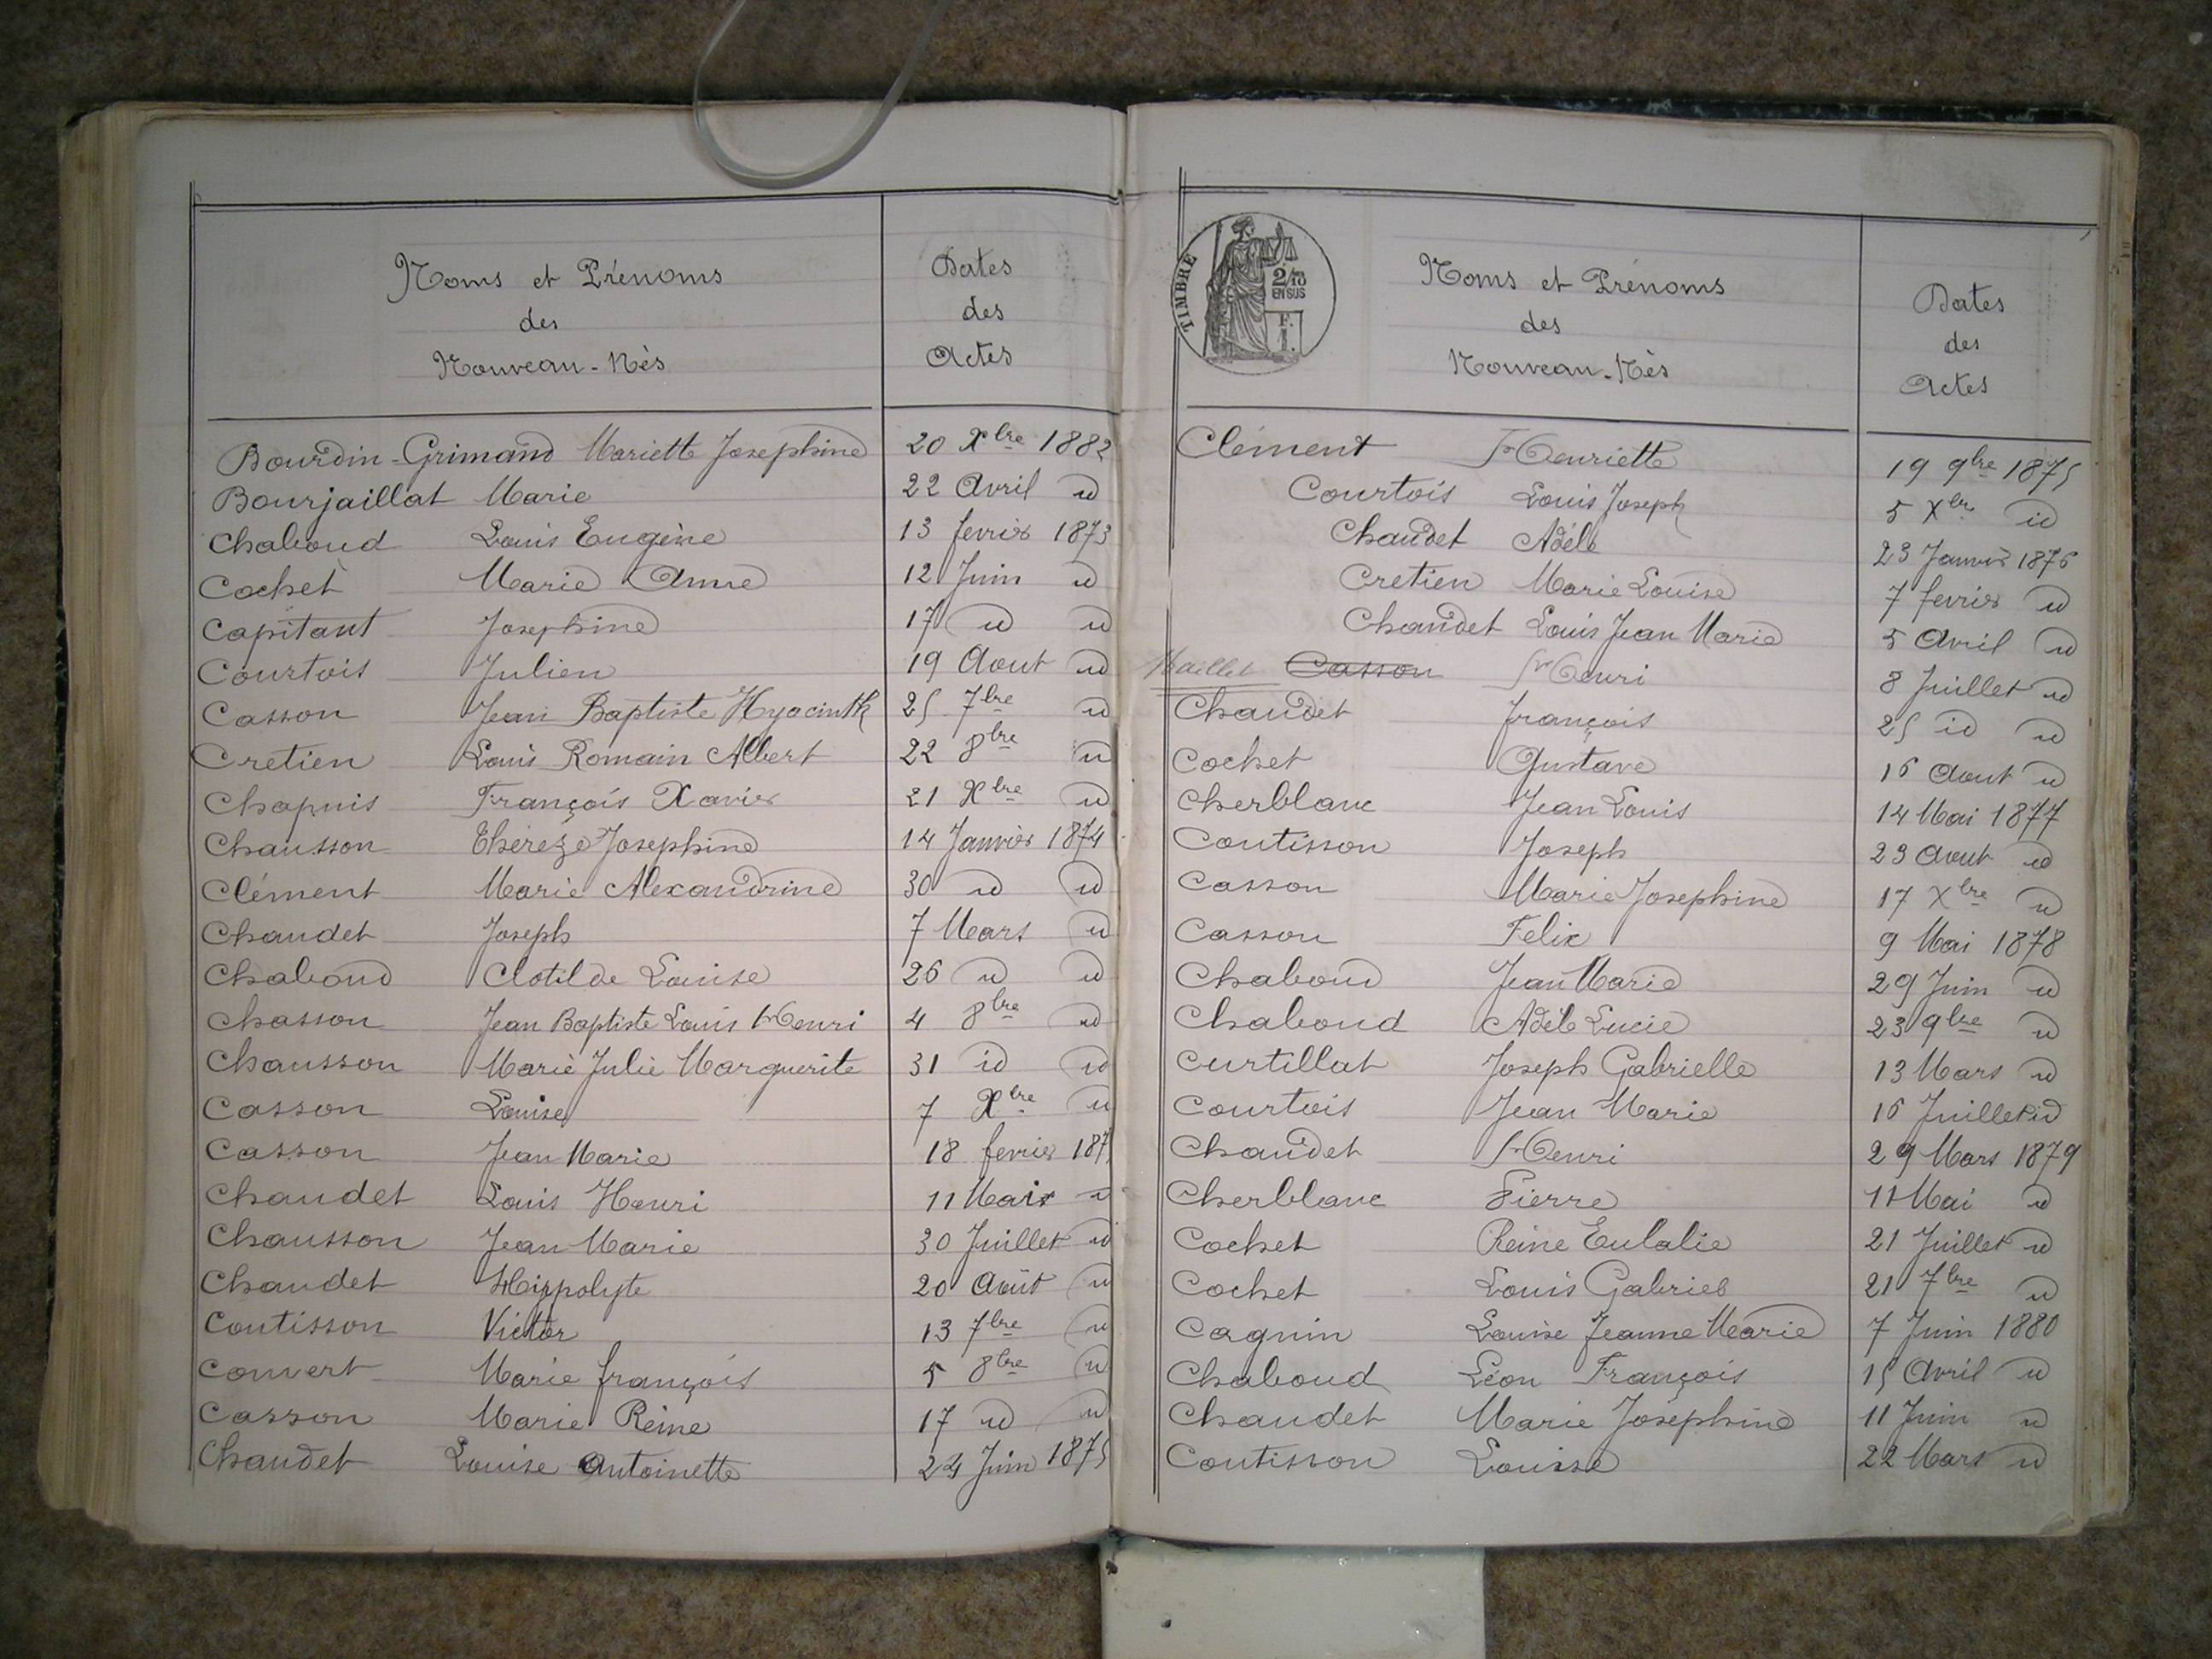 Noms et Prénoms
des
Nouveau-Nés
Dates
des
Actes
Bourdin-Grimand Mariette Josephine 20 Xbre 1882
Bourjaillat Marie 22 Avril id
Chaboud Louis Eugène 13 fevrier 1873
Cochet Marie Anne 12 Juin id
Capitant Josephine 17 id id
Courtois Julien 19 Aout id
Casson Jean Baptiste Hyacinth 25 7bre id
Cretien Louis Romain Albert 22 8bre id
Chapuis François Xavier 21 Xbre id
Chausson Thérèze Josephine 14 Janvier 1874
Clément Marie Alexandrine 30 id id
Chaudet Joseph 7 Mars id
Chaboud Clotilde Louise 26 id id
Chasson Jean Baptiste Louis Henri 4 8bre id
Chausson Marie Julie Marguerite 31 id id
Casson Louise 7 Xbre id
Casson Jean Marie 18 fevrier 187
Chaudet Louis Henri 11 Mars id
Chausson Jean Marie 30 Juillet id
Chaudet Hippolyte 20 Août id
Coutisson Victor 13 7bre id
Convert Marie françois 5 8bre id
Casson Marie Reine 17 id id
Chaudet Louise Antoinette 24 Juin 1875
TIMBRE
2/10
EN SUS
F.
1.
Noms et Prénoms
des
Nouveau-Nés
Dates
des
Actes
Clément Henriette 19 9bre 1875
Courtois Louis Joseph 5 Xbre id
Chaudet Adèle 23 Janvier 1876
Cretien Marie Louise 7 fevrier id
Chaudet Louis Jean Marie 5 Avril id
Maillet Casson Henri 8 Juillet id
Chaudet françois 25 id id
Cochet Gustave 16 Aout id
Cherblanc Jean Louis 14 Mai 1877
Coutisson Joseph 23 Aout id
Casson Marie Josephine 17 Xbre id
Casson Felix 9 Mai 1878
Chaboud Jean Marie 29 Juin id
Chaboud Adèle Lucie 23 9bre id
Curtillat Joseph Gabrielle 13 Mars id
Courtois Jean Marie 16 Juillet id
Chaudet Henri 29 Mars 1879
Cherblanc Pierre 11 Mai id
Cochet Reine Eulalie 21 Juillet id
Cochet Louis Gabriel 21 7bre id
Cagnin Louise Jeanne Marie 7 Juin 1880
Chaboud Léon François 15 Avril id
Chaudet Marie Joséphine 11 Juin id
Coutisson Louise 22 Mars id